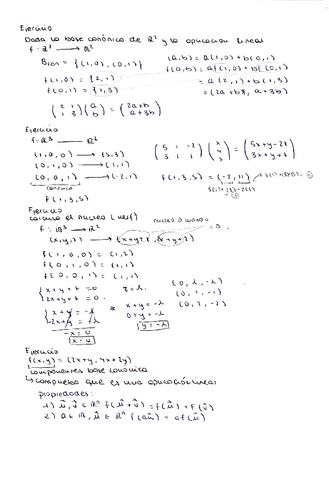 Ejercicio
Dada la base canónica de R² y la aplicación lineal
f: R² → R²
Base = {(1,0), (0,1)}
(a,b) = a(1,0) + b(0,1)
f(a,b) = af(1,0) + bf(0,1)
f(1,0) = (2,1)
= a(2,1) + b(1,3)
f(0,1) = (1,3)
= (2a+b, a+3b)
(2 1 / 1 3) (a / b) = (2a+b / a+3b)
Ejercicio
f: R³ → R²
(1,0,0) → (5,3)
(0,1,0) → (1,1)
(0,0,1) → (-2,1)
canónica
(5 1 -2 / 3 1 1) (x / y / z) = (5x+y-2z / 3x+y+z)
f(1,3,5) = (-2,11)
f(1,3,5)
Ejercicio
calcula el nucleo (Kerf)
f: R³ → R²
(x,y,z) → (x+y+z, 2x+y+z) = 0
f(1,0,0) = (1,2)
f(0,1,0) = (1,1)
f(0,0,1) = (1,1)
{x+y+z = 0
2x+y+z = 0
z = λ
(0, λ, -λ)
(0, 1, -1)
(0, 2, -2)
{x+y = -λ
-2x+y = -λ
x+y = -λ
0+y = -λ
-x = 0
y = -λ
x = 0
Ejercicio
f(x,y) = (2x+y, 4x+2y)
componentes base canonica
↳ comprueba que es una aplicación lineal
propiedades:
1) ū, v̄ ∈ Rⁿ f(ū+v̄) = f(ū) + f(v̄)
2) a ∈ R, ū ∈ Rⁿ f(aū) = af(ū)